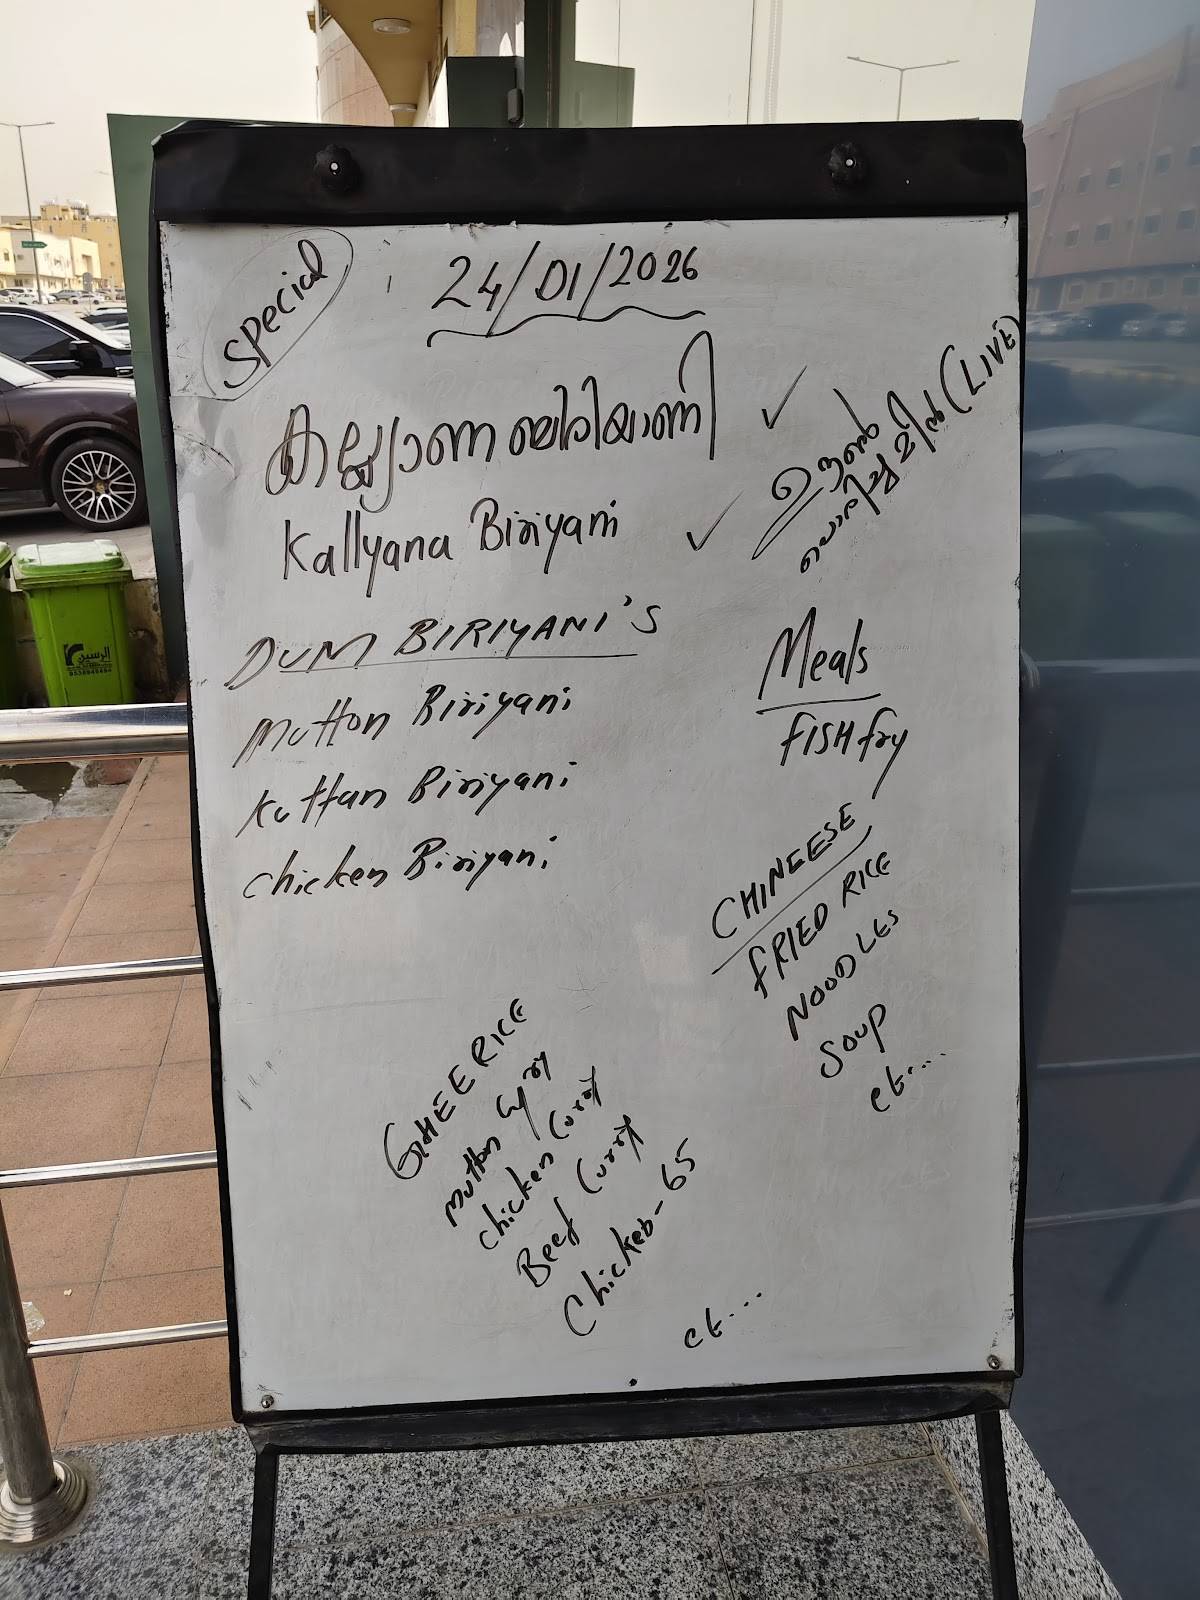 Special
24/01/2026
കല്ല്യാണ ബിരിയാണി
Kallyana Biriyani
ഊൺ
പൊരിച്ച മീൻ (LIVE)
DUM BIRIYANI'S
Mutton Biriyani
Kuttan Biriyani
chicken Biriyani
Meals
FISH fry
CHINEESE
FRIED RICE
NOODLES
Soup
et...
GHEE RICE
mutton Curry
chicken Curry
Beef Curry
Chicken-65
et...
الرسين